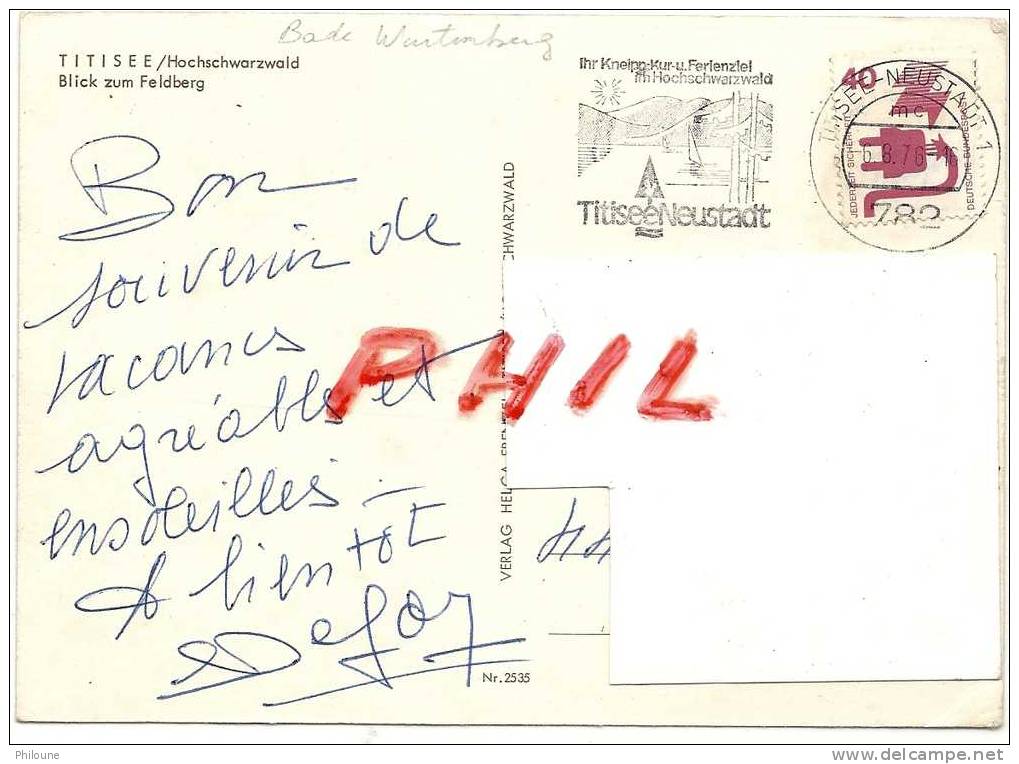 Bade Wurtemberg
TITISEE/Hochschwarzwald
Blick zum Feldberg
Ihr Kneipp-Kur-u.Ferienziel
im Hochschwarzwald
Titisee Neustadt
40
TITISEE-NEUSTADT 1
mc
-6.8.76
782
JEDERZEIT SICHERHEIT
DEUTSCHE BUNDESPOST
Bon
souvenir de
vacances
agréables et
ensoleillés -
A bientôt
PHIL
44
VERLAG HELGA
CHWARZWALD
Nr. 2535
Philoune
http://www.delcampe.net